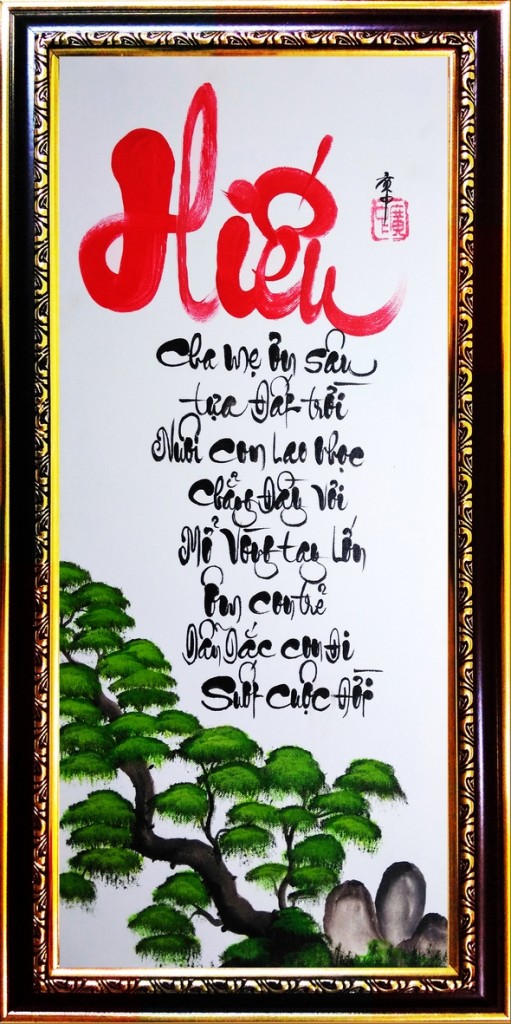 Hiếu
Cha mẹ ơn sâu
tựa Đất trời
Nuôi con lao nhọc
Chẳng Đầy vơi
Mở Vòng tay lớn
ôm con trẻ
Dẫn Dắc con Đi
Suốt cuộc Đời